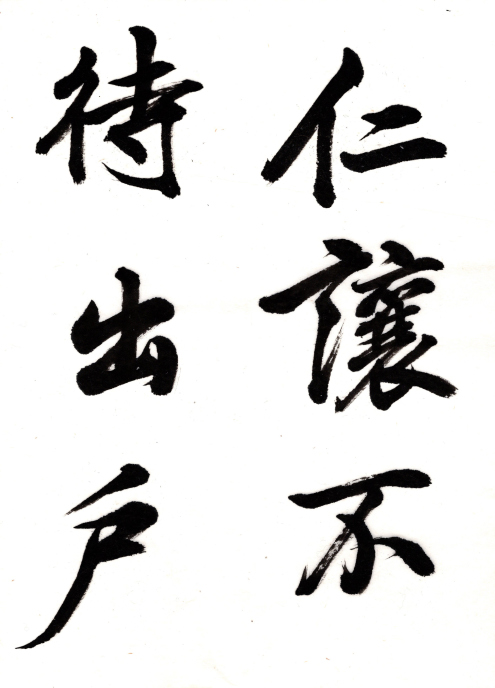 仁讓不
待出戶